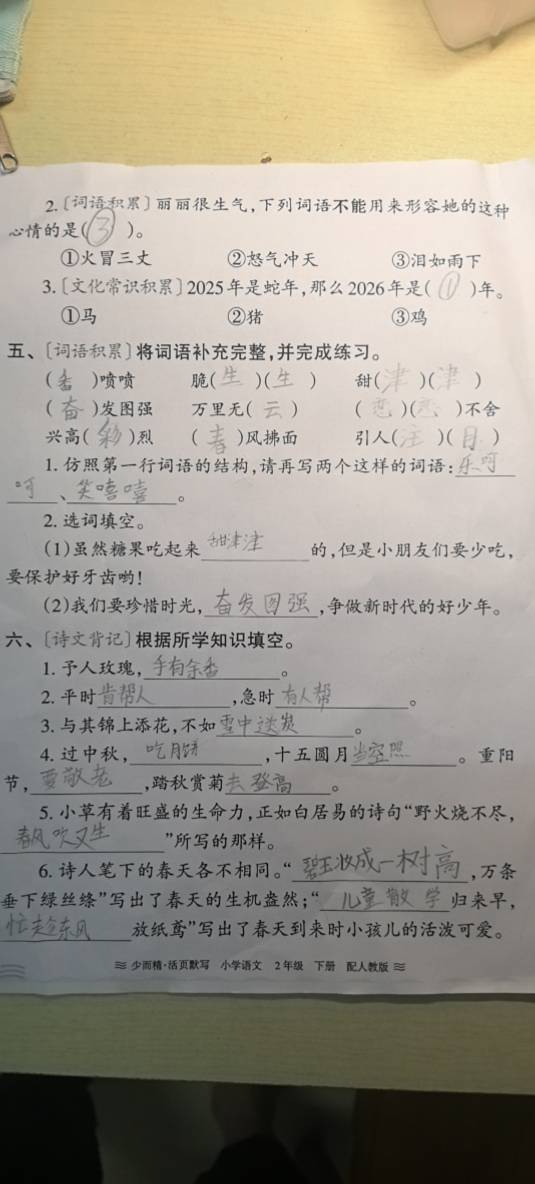 2.〔词语积累〕丽丽很生气,下列词语不能用来形容她的这种
心情的是( ③ )。
①火冒三丈 ②怒气冲天 ③泪如雨下
3.〔文化常识积累〕2025年是蛇年,那么2026年是( ① )年。
①马 ②猪 ③鸡
五、〔词语积累〕将词语补充完整,并完成练习。
( 香 )喷喷 脆( 生 )( 生 ) 甜( 津 )( 津 )
( 奋 )发图强 万里无( 云 ) ( 恋 )( 恋 )不舍
兴高( 彩 )烈 ( 春 )风拂面 引人( 注 )( 目 )
1. 仿照第一行词语的结构,请再写两个这样的词语:乐呵
呵、笑嘻嘻。
2. 选词填空。
(1)虽然糖果吃起来甜津津的,但是小朋友们要少吃,
要保护好牙齿哟!
(2)我们要珍惜时光,奋发图强,争做新时代的好少年。
六、〔诗文背记〕根据所学知识填空。
1. 予人玫瑰,手有余香。
2. 平时肯帮人,急时有人帮。
3. 与其锦上添花,不如雪中送炭。
4. 过中秋,吃月饼,十五圆月当空照。重阳
节,要敬老,踏秋赏菊去登高。
5. 小草有着旺盛的生命力,正如白居易的诗句“野火烧不尽,
春风吹又生”所写的那样。
6. 诗人笔下的春天各不相同。“碧玉妆成一树高,万条
垂下绿丝绦”写出了春天的生机盎然;“儿童散学归来早,
忙趁东风放纸鸢”写出了春天到来时小孩儿的活泼可爱。
少而精·活页默写 小学语文 2年级 下册 配人教版